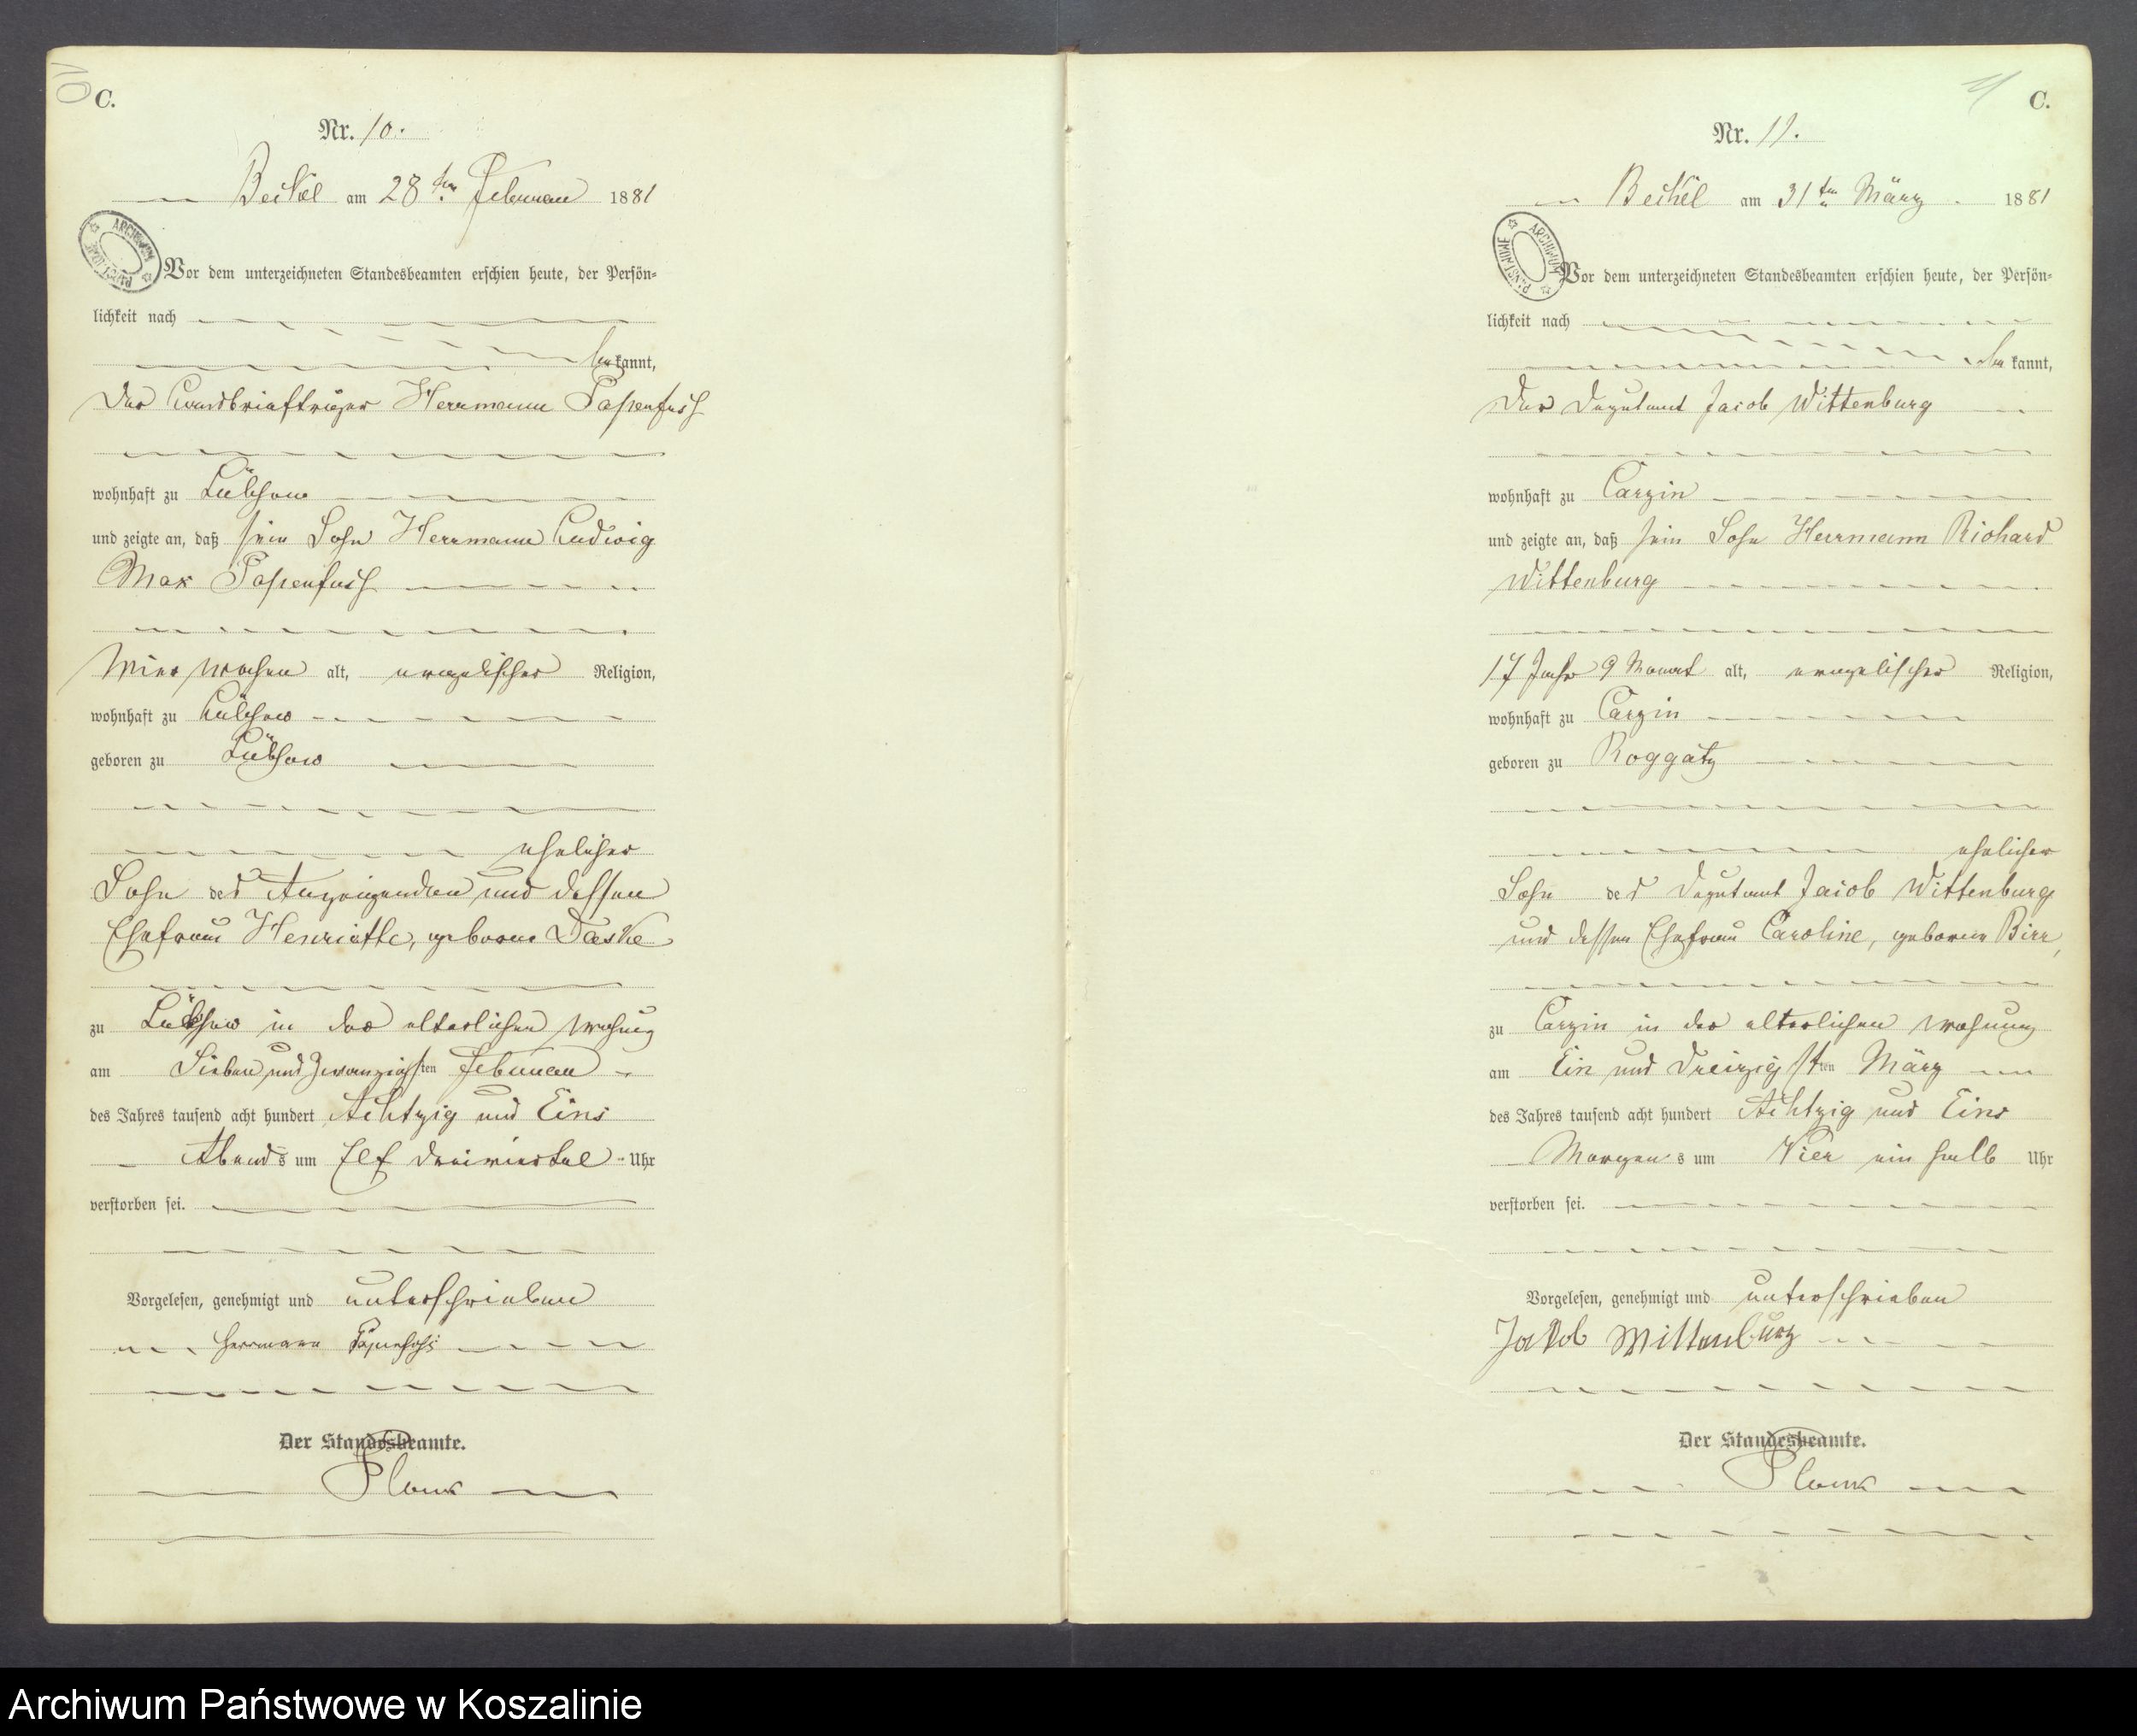 10
C.
Nr. 10.
Beckel am 28ten Februar 1881
ARCHIWUM PAŃSTWOWE
Vor dem unterzeichneten Standesbeamten erschien heute, der Persön=
lichkeit nach
bekannt,
der Landbriefträger Herrmann Papenfuss
wohnhaft zu Lübzow
und zeigte an, daß sein Sohn Herrmann Ludwig
Max Papenfuss
Vier Wochen alt, evangelischer Religion,
wohnhaft zu Lübzow
geboren zu Lübzow
ehelicher
Sohn des Anzeigenden und dessen
Ehefrau Henriette, geborene Daske
zu Lübzow in der elterlichen Wohnung
am Sieben und Zwanzigsten Februar
des Jahres tausend acht hundert Achtzig und Eins
Abends um Elf dreiviertel Uhr
verstorben sei.
Vorgelesen, genehmigt und unterschrieben
Herrmann Papenfuß
Der Standesbeamte.
11
C.
Nr. 11.
Beckel am 31ten März 1881
ARCHIWUM PAŃSTWOWE
Vor dem unterzeichneten Standesbeamten erschien heute, der Persön=
lichkeit nach
bekannt,
der Deputant Jacob Wittenburg
wohnhaft zu Carzin
und zeigte an, daß sein Sohn Herrmann Richard
Wittenburg
17 Jahr 9 Monat alt, evangelischer Religion,
wohnhaft zu Carzin
geboren zu Roggatz
ehelicher
Sohn des Deputant Jacob Wittenburg
und dessen Ehefrau Caroline, geborene Birr,
zu Carzin in der elterlichen Wohnung
am Ein und Dreizigsten März
des Jahres tausend acht hundert Achtzig und Eins
Morgens um Vier ein halb Uhr
verstorben sei.
Vorgelesen, genehmigt und unterschrieben
Jakob Wittenburg
Der Standesbeamte.
Archiwum Państwowe w Koszalinie